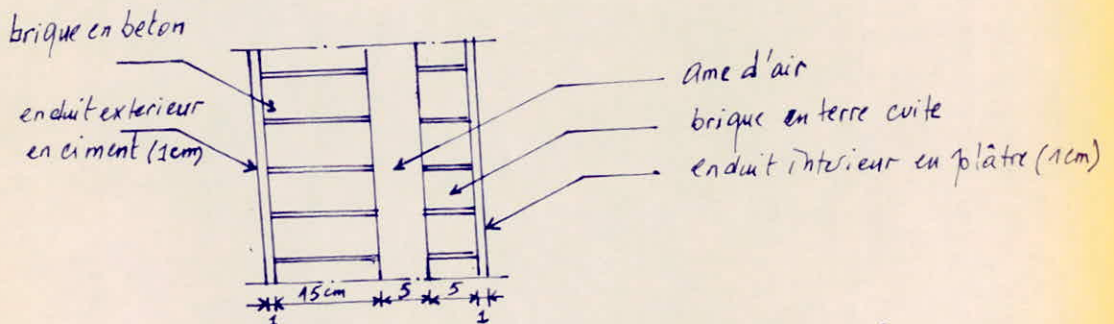 brique en beton
enduit exterieur
en ciment (1cm)
ame d'air
brique en terre cuite
enduit intérieur en plâtre (1cm)
15cm 5 5
1 1